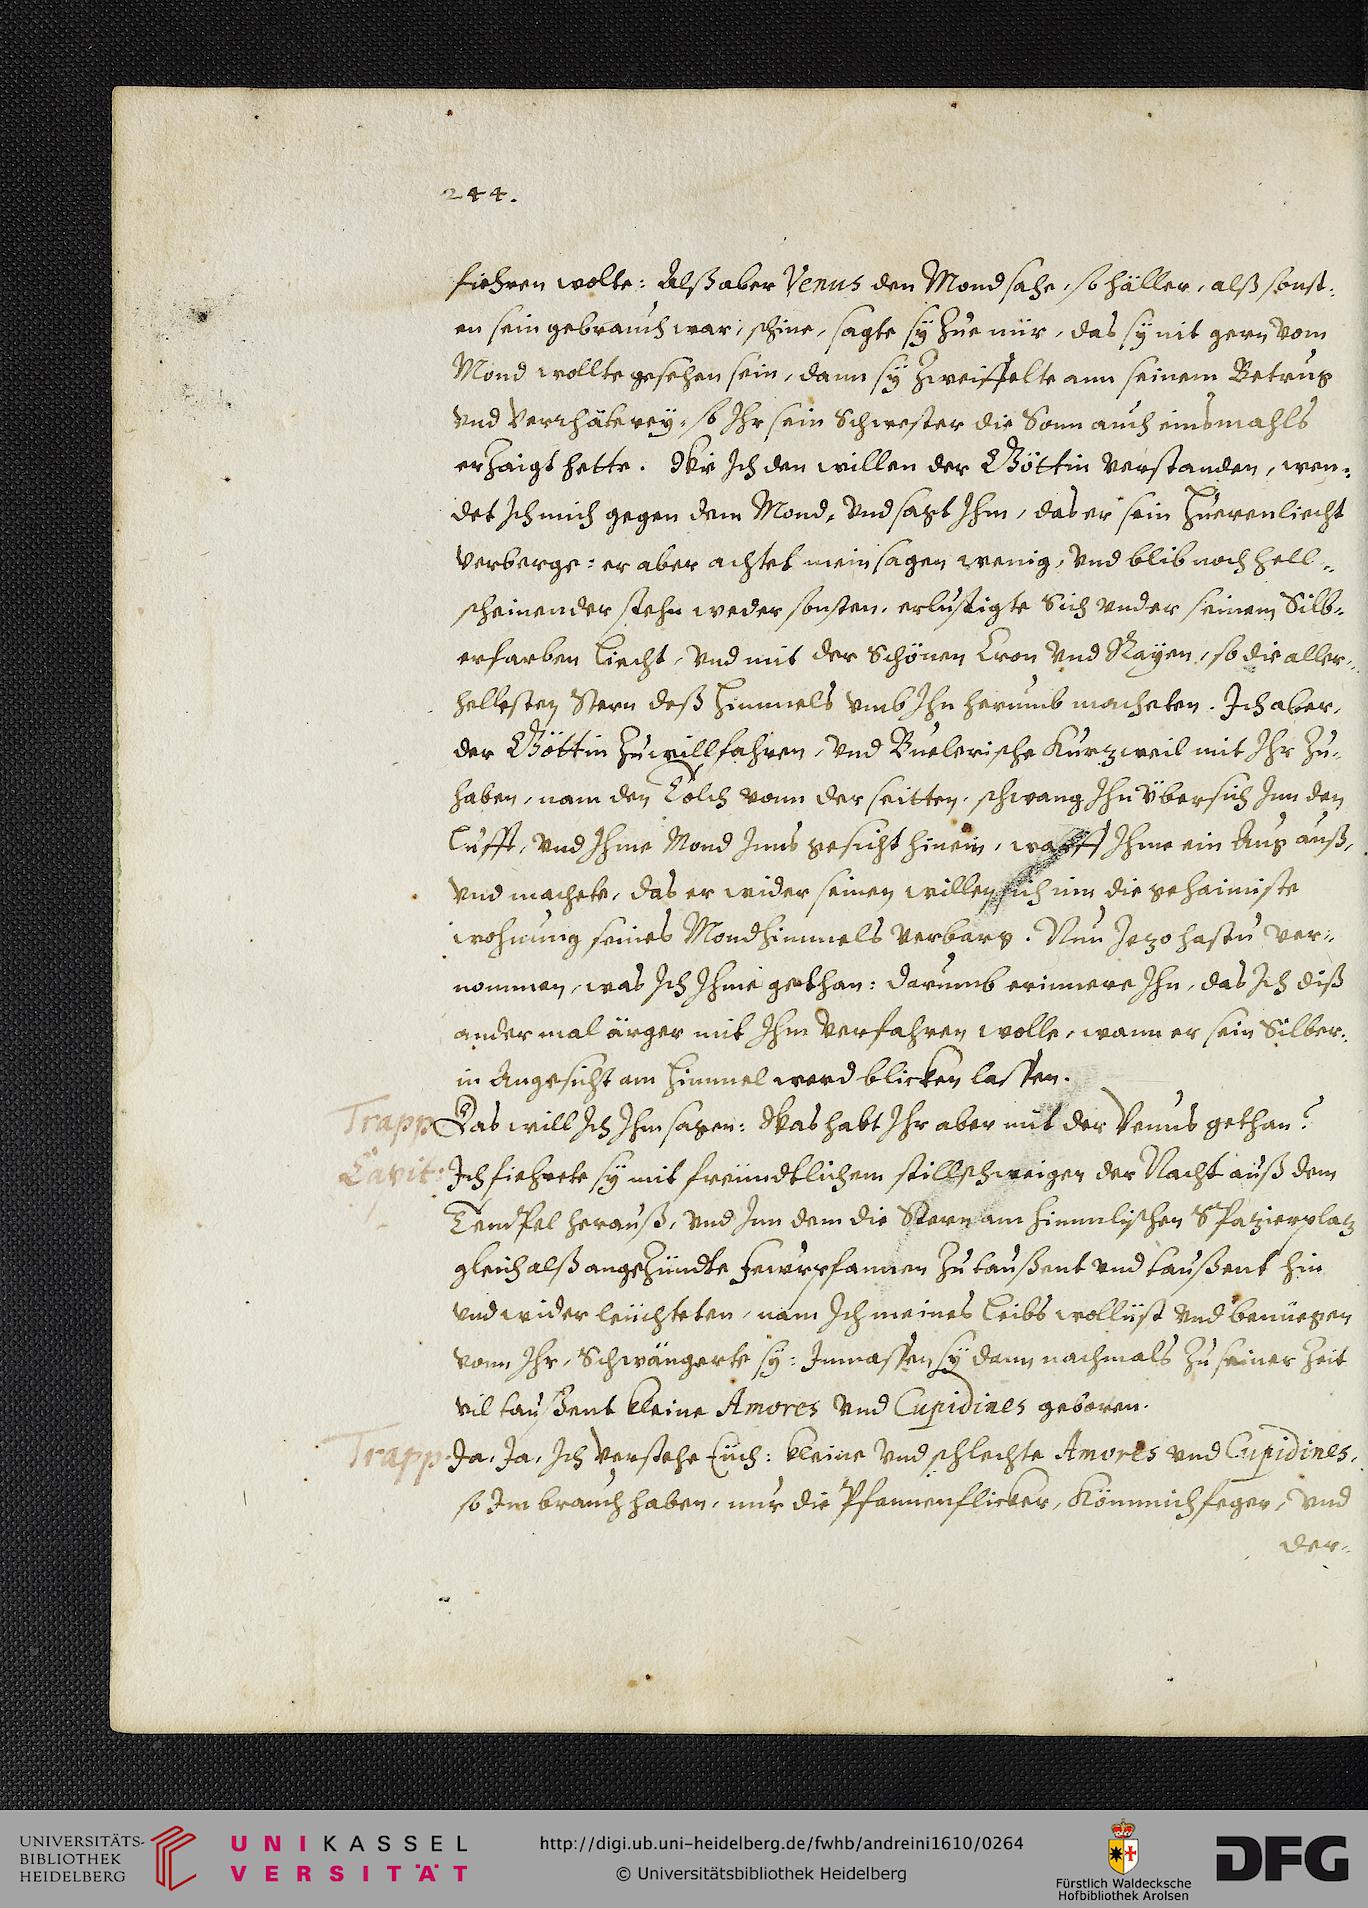 244.
fiehren wolte: Alß aber Venus den Mond sahe, so häller, alß sonst:
en sein gebrauch war, schine, sagte sÿ Zue mir, das sÿ nit gern vom
Mond wollte gesehen sein, dann sÿ Zweiffelte ann seinem Betrug
vnd Verrhäterey, so Ihr sein Schwester die Sonn auch einsmahls
erZaigt hette. Wie Ich den willen der Göttin verstanden, wen:
det Ich mich gegen dem Mond, vnd sagt Ihm, das er sein Huerenliecht
verberge: er aber achtet mein sagen wenig, vnd blib noch hell:
scheinender stehn weder sonsten, erlustigte Sich vnder seinem Silb:
erfarben Liecht, vnd mit der Schönen Cron vnd Rayen, so die aller:
hellesten Stern deß Himmels vmb Ihn herumb macheten. Ich aber,
der Göttin Zu willfahren, vnd Buelerische Kurzweil mit Ihr Zu:
haben, nam den Tolch vonn der seitten, schwang Ihn übersich Inn den
Lufft, vnd Ihme Mond Inns gesicht hinein, warff Ihme ein Aug auß,
vnd machete, das er wider seinen willen sich inn die gehaimiste
wohnung seines Mondhimmels verbarg. Nun Jezo hastu ver:
nommen, was Ich Ihme gethan: darumb erinnere Ihn, das Ich diß
ander mal ärger mit Ihm verfahren wolle, wann er sein Silber:
in Angesicht am Himmel werd blicken lassen.
Trapp Das will Ich Ihm sagen: Was habt Ihr aber mit der Venus gethan?
Capit: Ich fiehrete sÿ mit freündtlichem stillschweigen der Nacht auß dem
Tempel herauß, vnd Inn dem die Stern am himmlischen Spazierplaz
gleich alß angeZündte Fewrpfannen Zu taußent vnd taußent hin
vnd wider leüchteten, nam Ich meines Leibs wollust vnd benüegen
vonn Ihr, Schwängerte sÿ: Inmassen sÿ dann nachmals Zu seiner Zeit
vil taußent kleine Amores vnd Cupidines geboren.
Trapp Ja, Ja, Ich verstehe Eüch: kleine vnd schlechte Amores vnd Cupidines,
so Im brauch haben, nur die Pfannenflicker, Kömmichfeger, vnd
der:
UNIVERSITÄTS-
BIBLIOTHEK
HEIDELBERG
UNIKASSEL
VERSITÄT
http://digi.ub.uni-heidelberg.de/fwhb/andreini1610/0264
© Universitätsbibliothek Heidelberg
Fürstlich Waldecksche
Hofbibliothek Arolsen
DFG